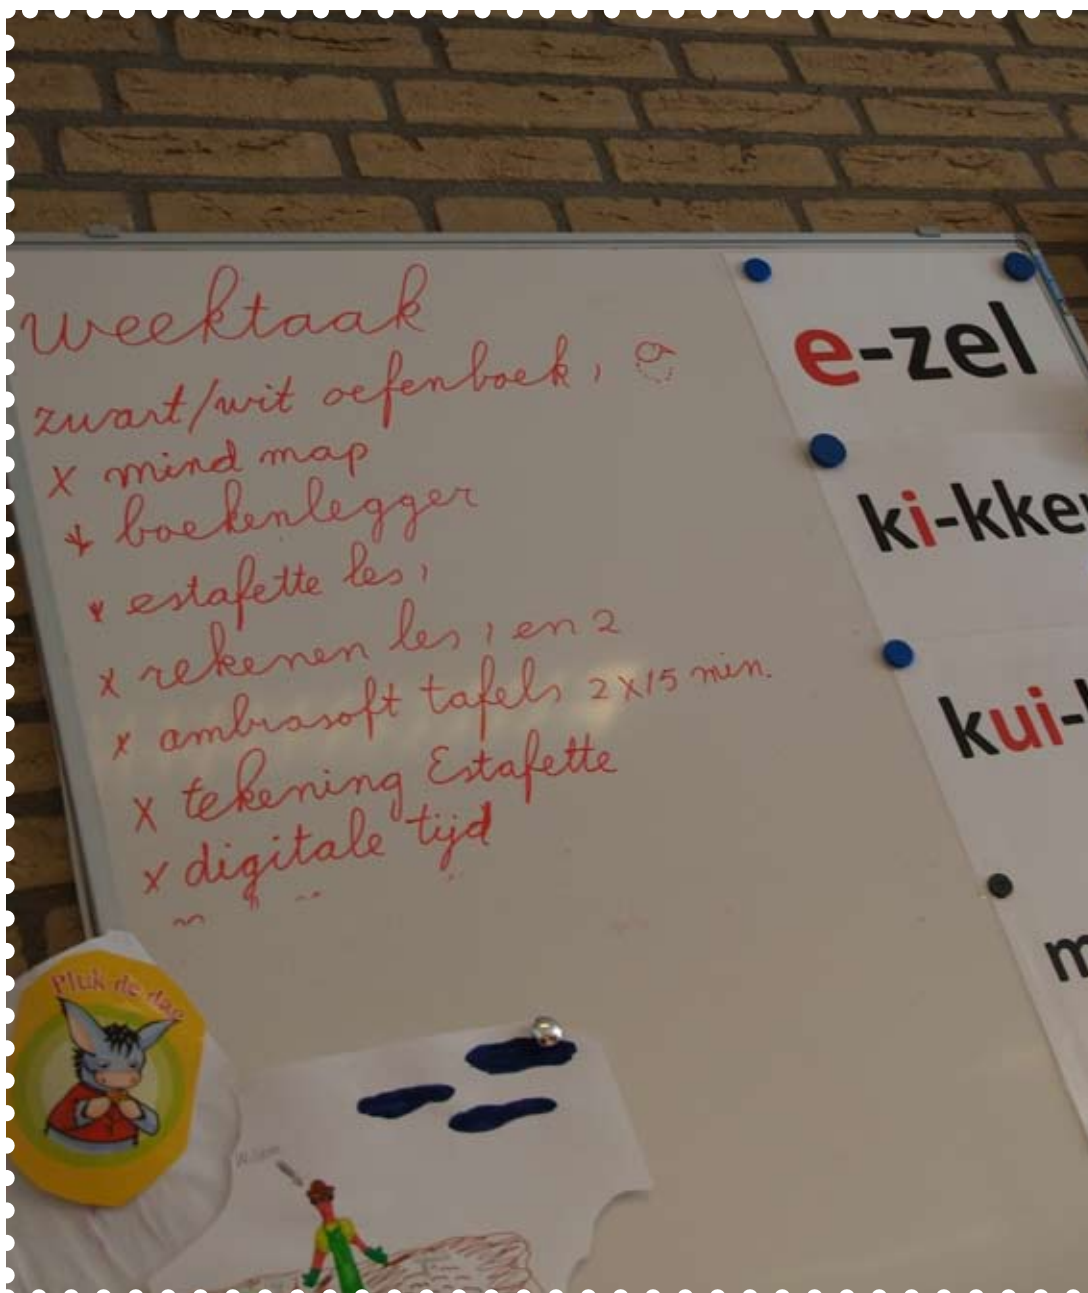 weektaak
zwart/wit oefenboek 1
x mind map
x boekenlegger
x estafette les 1
x rekenen les 1 en 2
x ambrasoft tafels 2x15 min.
x tekening Estafette
x digitale tijd
e-zel
ki-kke
kui-
m
Pluk de dag